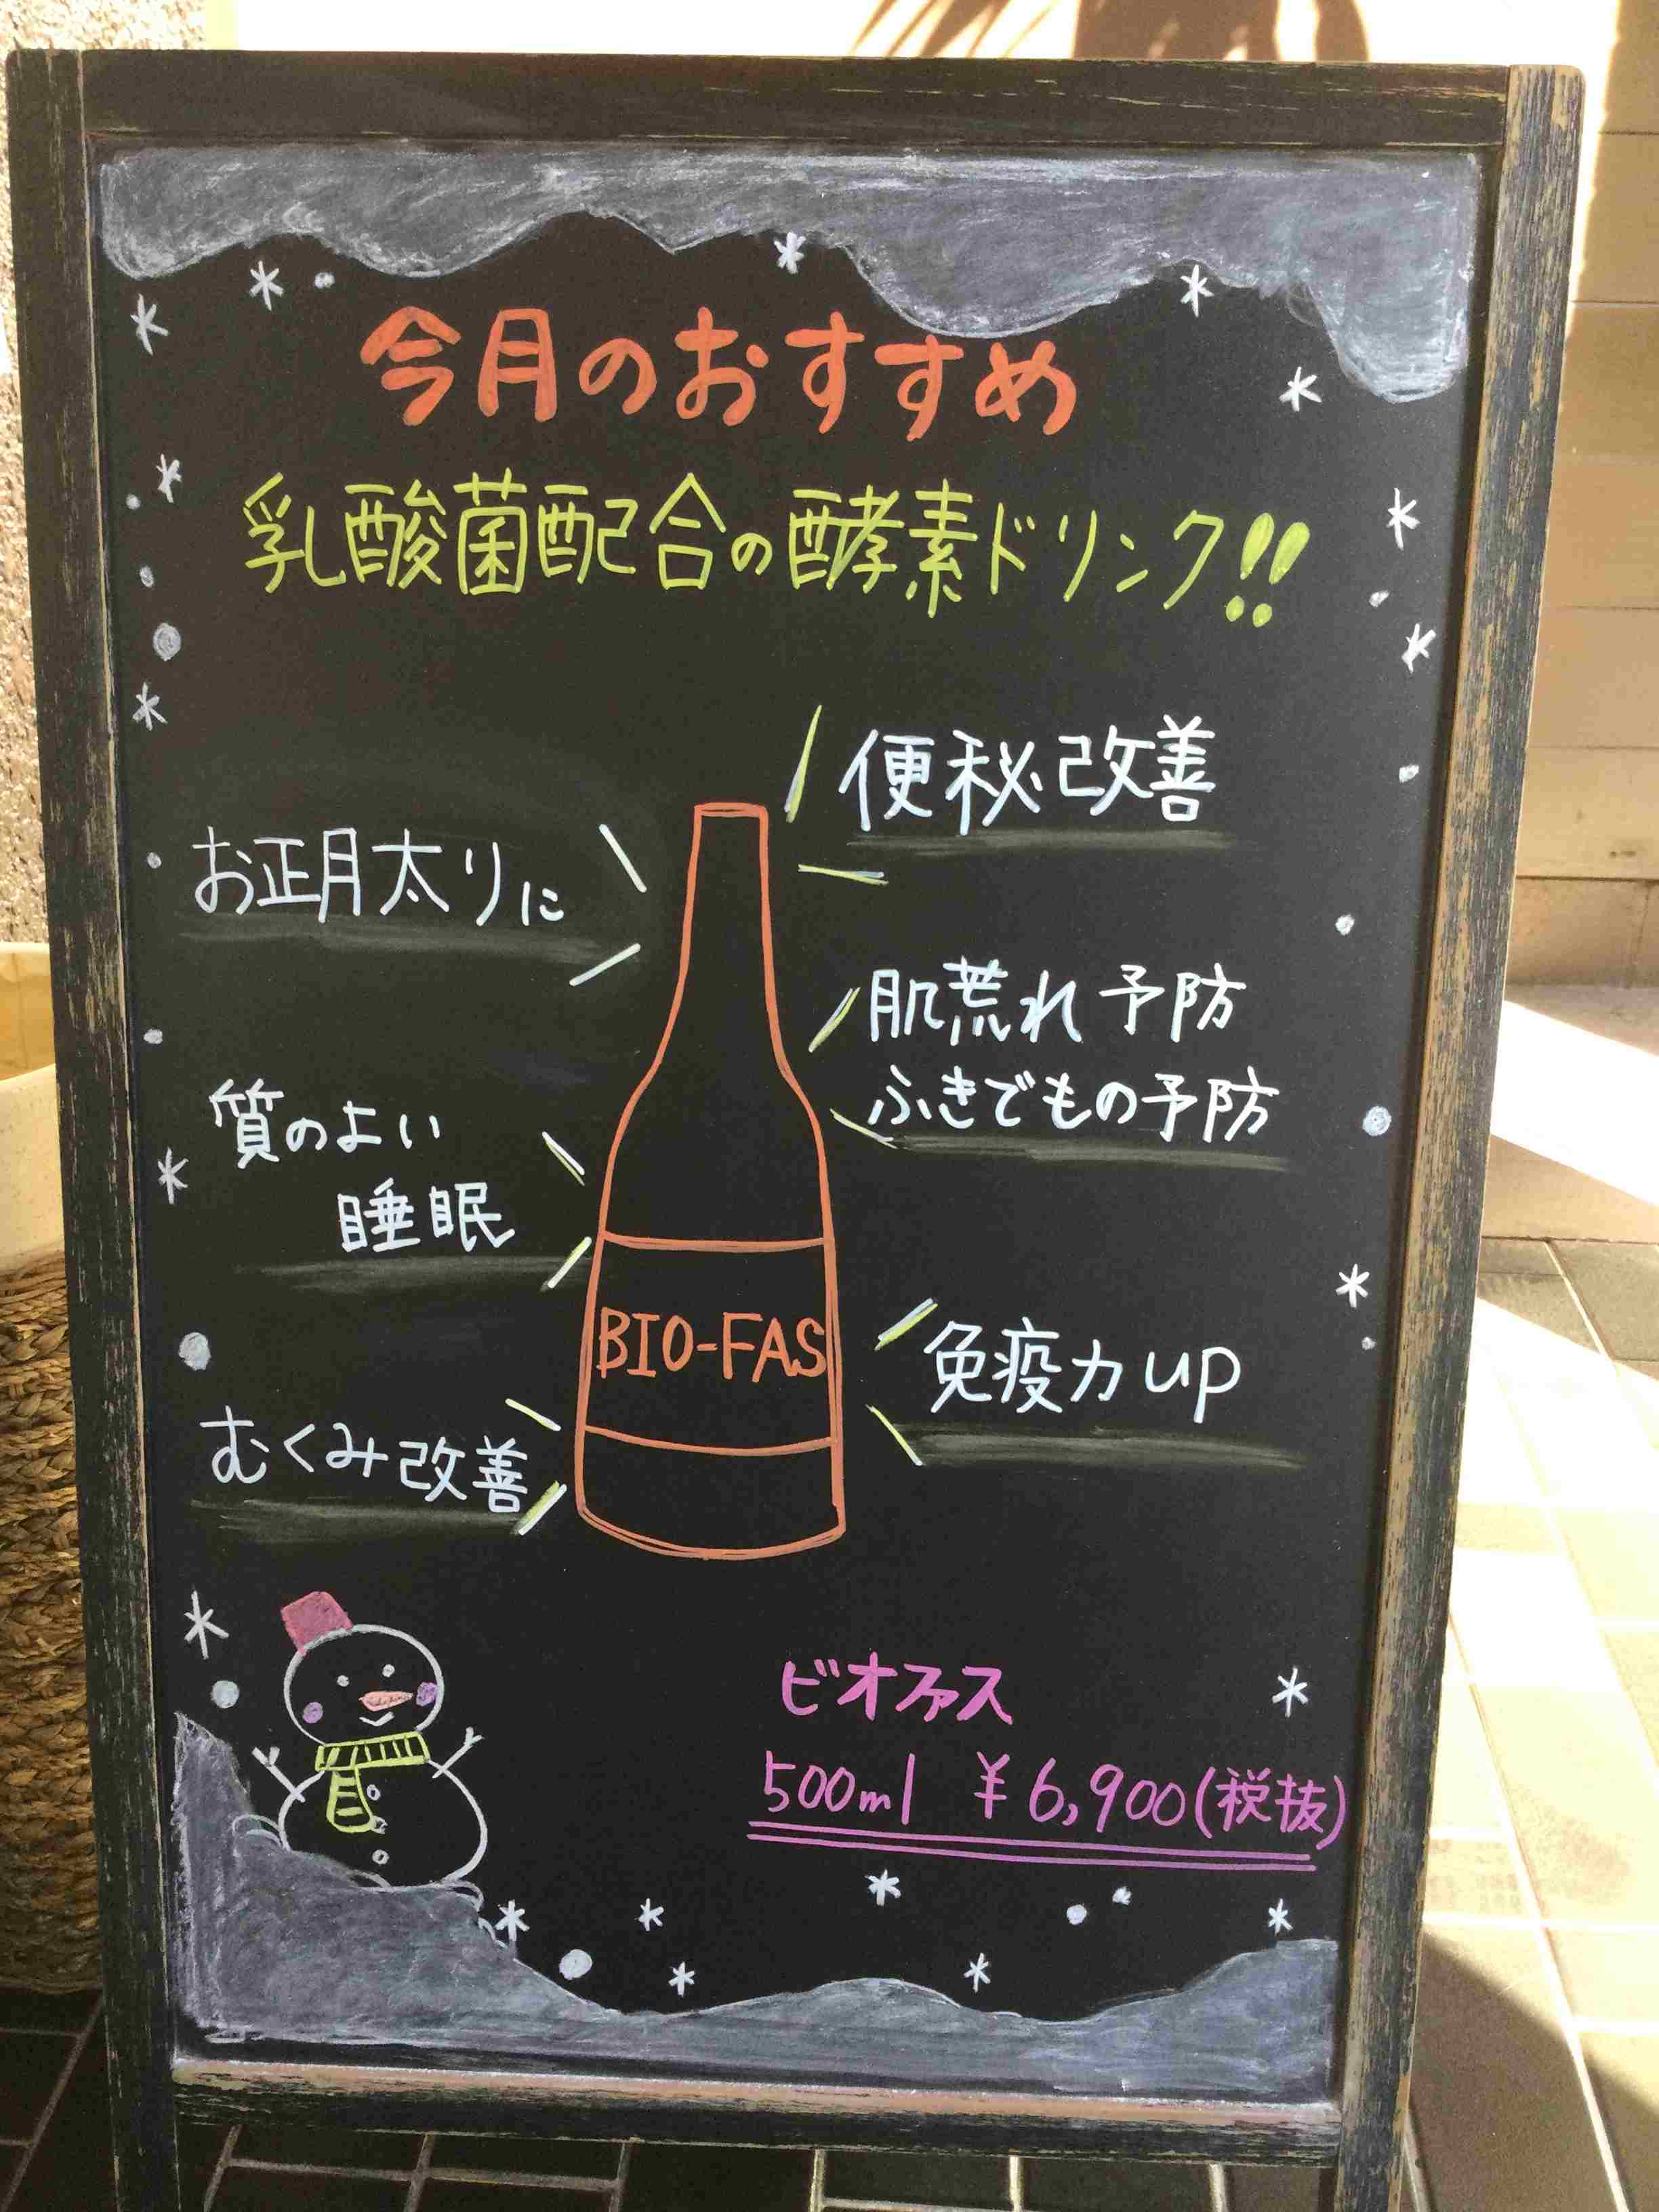 今月のおすすめ
乳酸菌配合の酵素ドリンク!!
便秘改善
お正月太りに
肌荒れ予防
ふきでもの予防
質のよい
睡眠
BIO-FAS
免疫力up
むくみ改善
ビオファス
500ml ¥6,900(税抜)